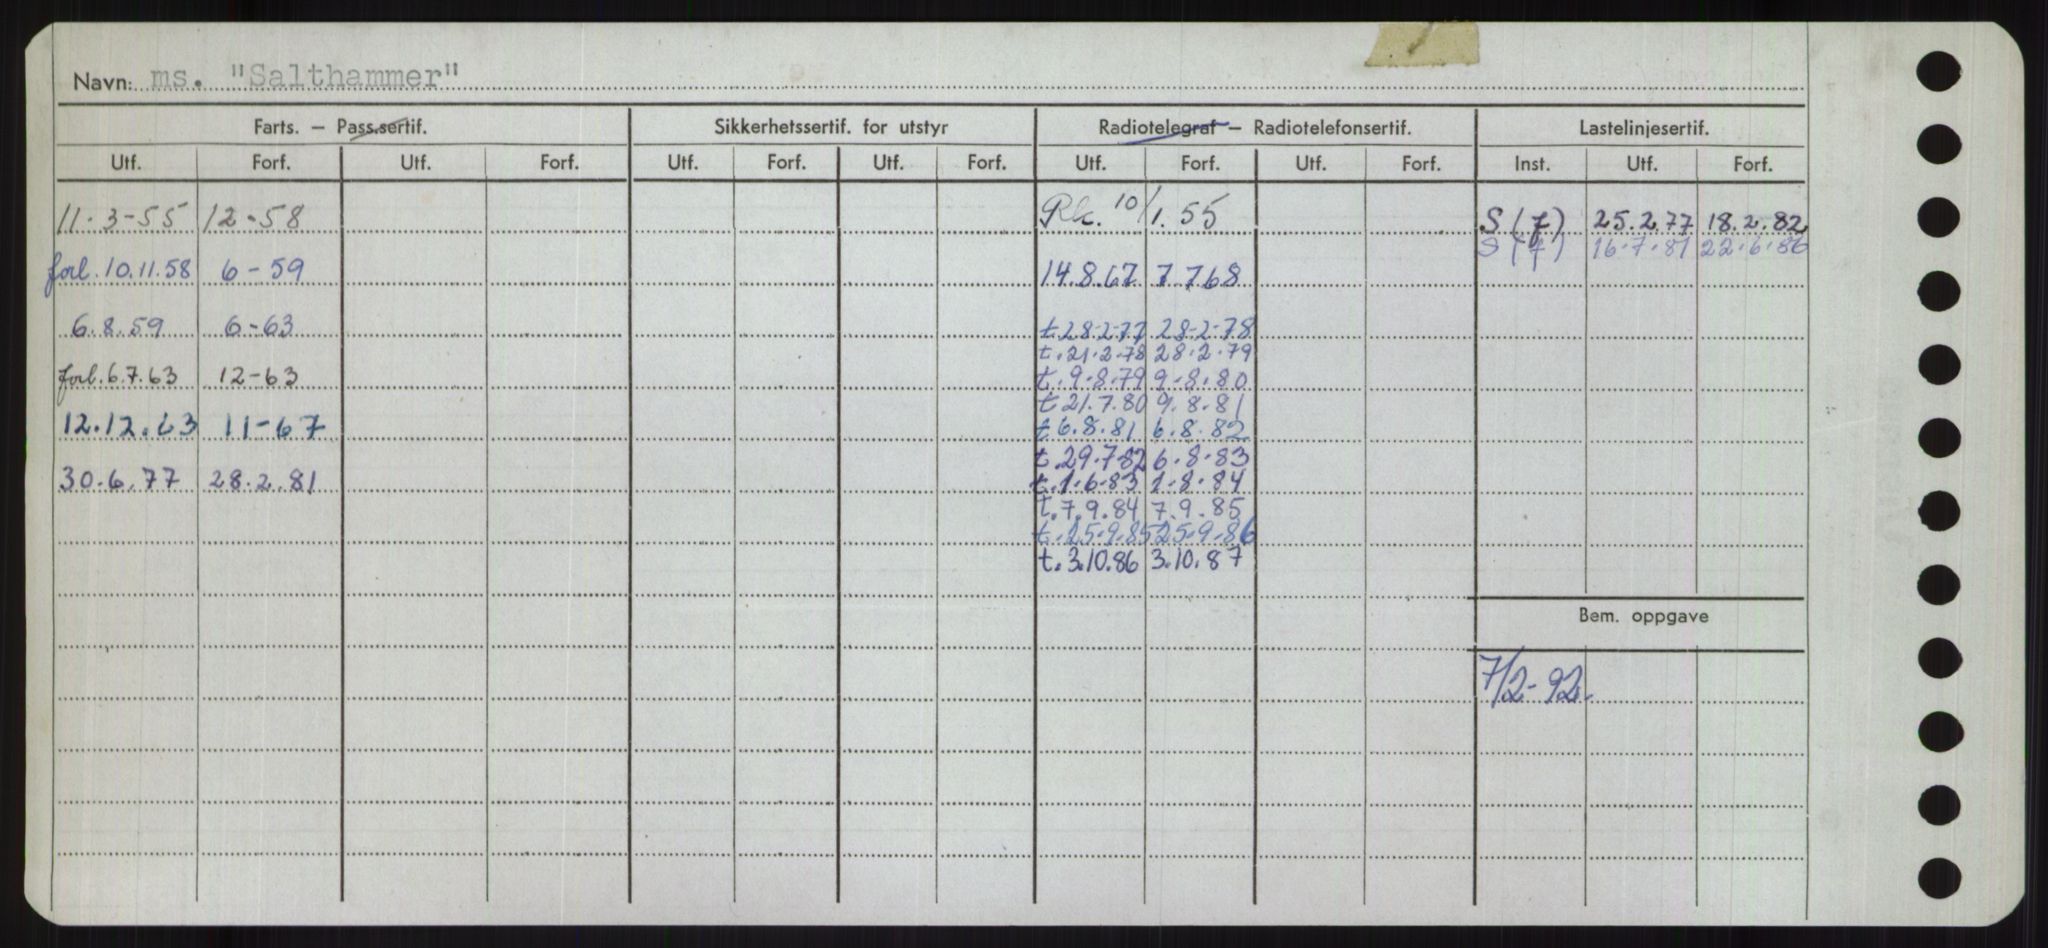 Navn: ms. "Salthammer"
Farts. – Pass.sertif. Sikkerhetssertif. for utstyr Radiotelegraf – Radiotelefonsertif. Lastelinjesertif.
Utf. Forf. Utf. Forf. Utf. Forf. Utf. Forf. Utf. Forf. Utf. Forf. Inst. Utf. Forf.
11.3-55 12-58 Rk. 10/1.55 S (7) 25.2.77 18.2.82
S (7) 16.7.81 22.6.86
forl. 10.11.58 6-59 14.8.67 7 768
6.8.59 6-63 t 28.2-77 28-2-78
t. 21.2-78 28.2.79
forl. 6.7.63 12-63 t. 9.8.79 9.8.80
t 21.7.80 9.8.81
12.12.63 11-67 t 6.8.81 6.8.82
t. 29.7-82 6.8.83
30.6.77 28.2.81 t. 1.6-83 1.8.84
t. 7.9.84 7.9.85
t. 25.9.85 25.9.86
t. 3.10.86 3.10.87
Bem. oppgave
7/2-92.